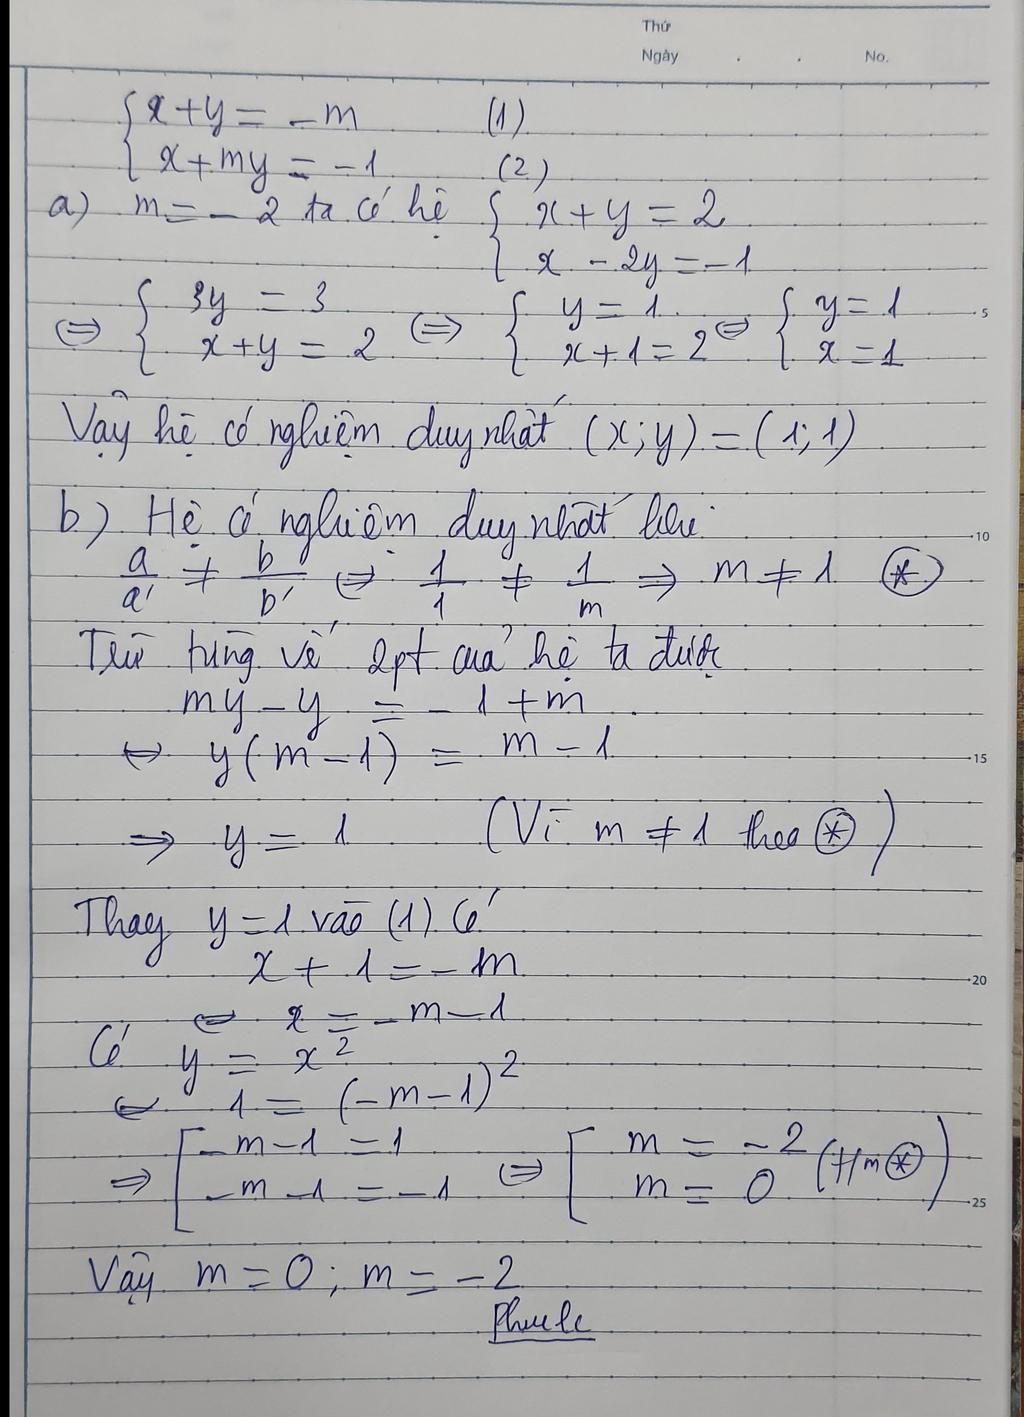 Thứ
Ngày . . No.
{ x + y = -m (1)
{ x + my = -1 (2)
a) m = -2 ta có hệ { x + y = 2
{ x - 2y = -1
⇔ { 3y = 3 ⇔ { y = 1 ⇔ { y = 1 5
{ x + y = 2 { x + 1 = 2 { x = 1
Vậy hệ có nghiệm duy nhất (x; y) = (1; 1)
b) Hệ có nghiệm duy nhất khi 10
a/a' ≠ b/b' ⇔ 1/1 ≠ 1/m ⇒ m ≠ 1 (*)
Trừ từng vế 2pt của hệ ta được
my - y = -1 + m
⇔ y(m - 1) = m - 1 15
⇒ y = 1 (Vì m ≠ 1 theo (*))
Thay y = 1 vào (1) Có
x + 1 = -m 20
⇔ x = -m - 1
Có y = x²
⇔ 1 = (-m - 1)²
⇒ [ -m - 1 = 1 ⇔ [ m = -2 (t/m (*))
[ -m - 1 = -1 [ m = 0 25
Vậy m = 0 ; m = -2